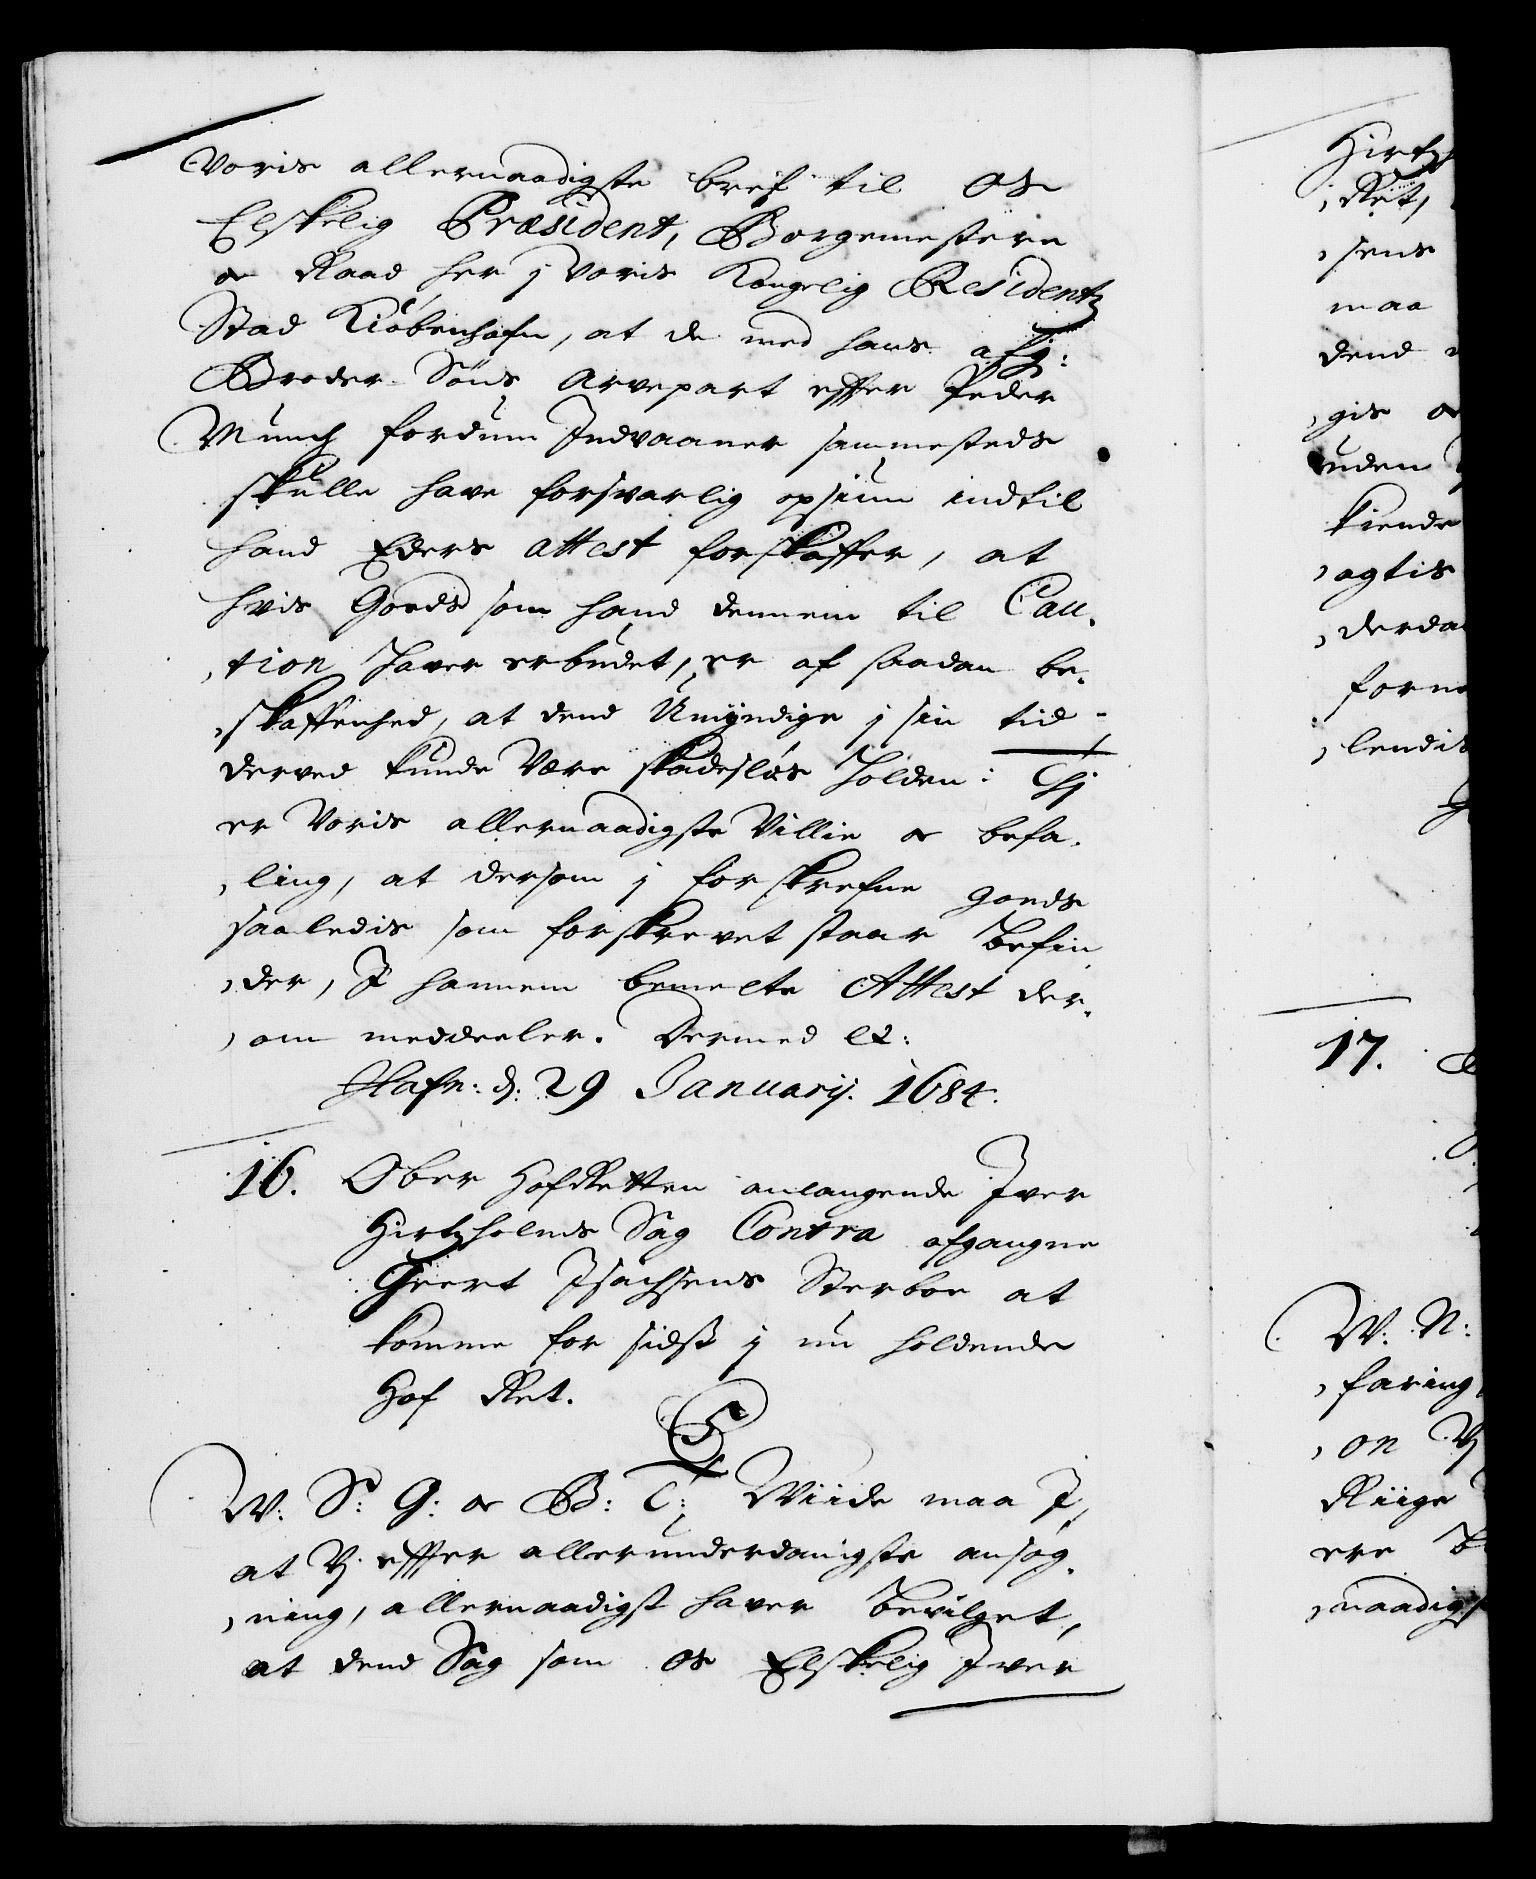 Voris allernaadigste bref til Os
Elskelig Præsident, Borgemestere
oc Raad her j Voris Kongelig Residentz
Stad Kiöbenhafn, at de med hans afg:
Broder Söns Arvepart effter Peder
Munch fordum Indvaaner sammesteds
skulle have forsvarlig opsiun indtil
hand Eders attest forskaffer, at
hvis Goeds som hand dennem til Cau,
,tion haver erbudet, er af saadan be,
,skaffenhed, at dend Umÿndige j sin tid
derved kunde Være skadeslös holden: Thj
er Voris allernaadigste Villie oc befa,
,ling, at dersom j forskrefne goeds
saaledis som forskrevet staar befin
,der, I hannem bemelte Attest der,
,om meddeeler. Dermed etc:
Hafn: d: 29 Januarij. 1684.
16. Ober HofRetten anlangende Iver
Hirtzholms Sag Contra afgangne
Geert Isachsens Sterboe at
komme for sidst j nu holdende
Hof Ret.
C5
W: S: G: oc B: T: Wiide maa I,
at Vj effter allerunderdanigste ansög,
,ning, allernaadigst haver bevilget,
at dend Sag som Os Elskelig Iver
Hirtz
,Ret,
,sens
maa
dend
,gis oc
uden
kiende
,agtis
,derda
forne
,lendis
17.
W: N:
,faring
,on Vj
Riige
ere b
,naadigs